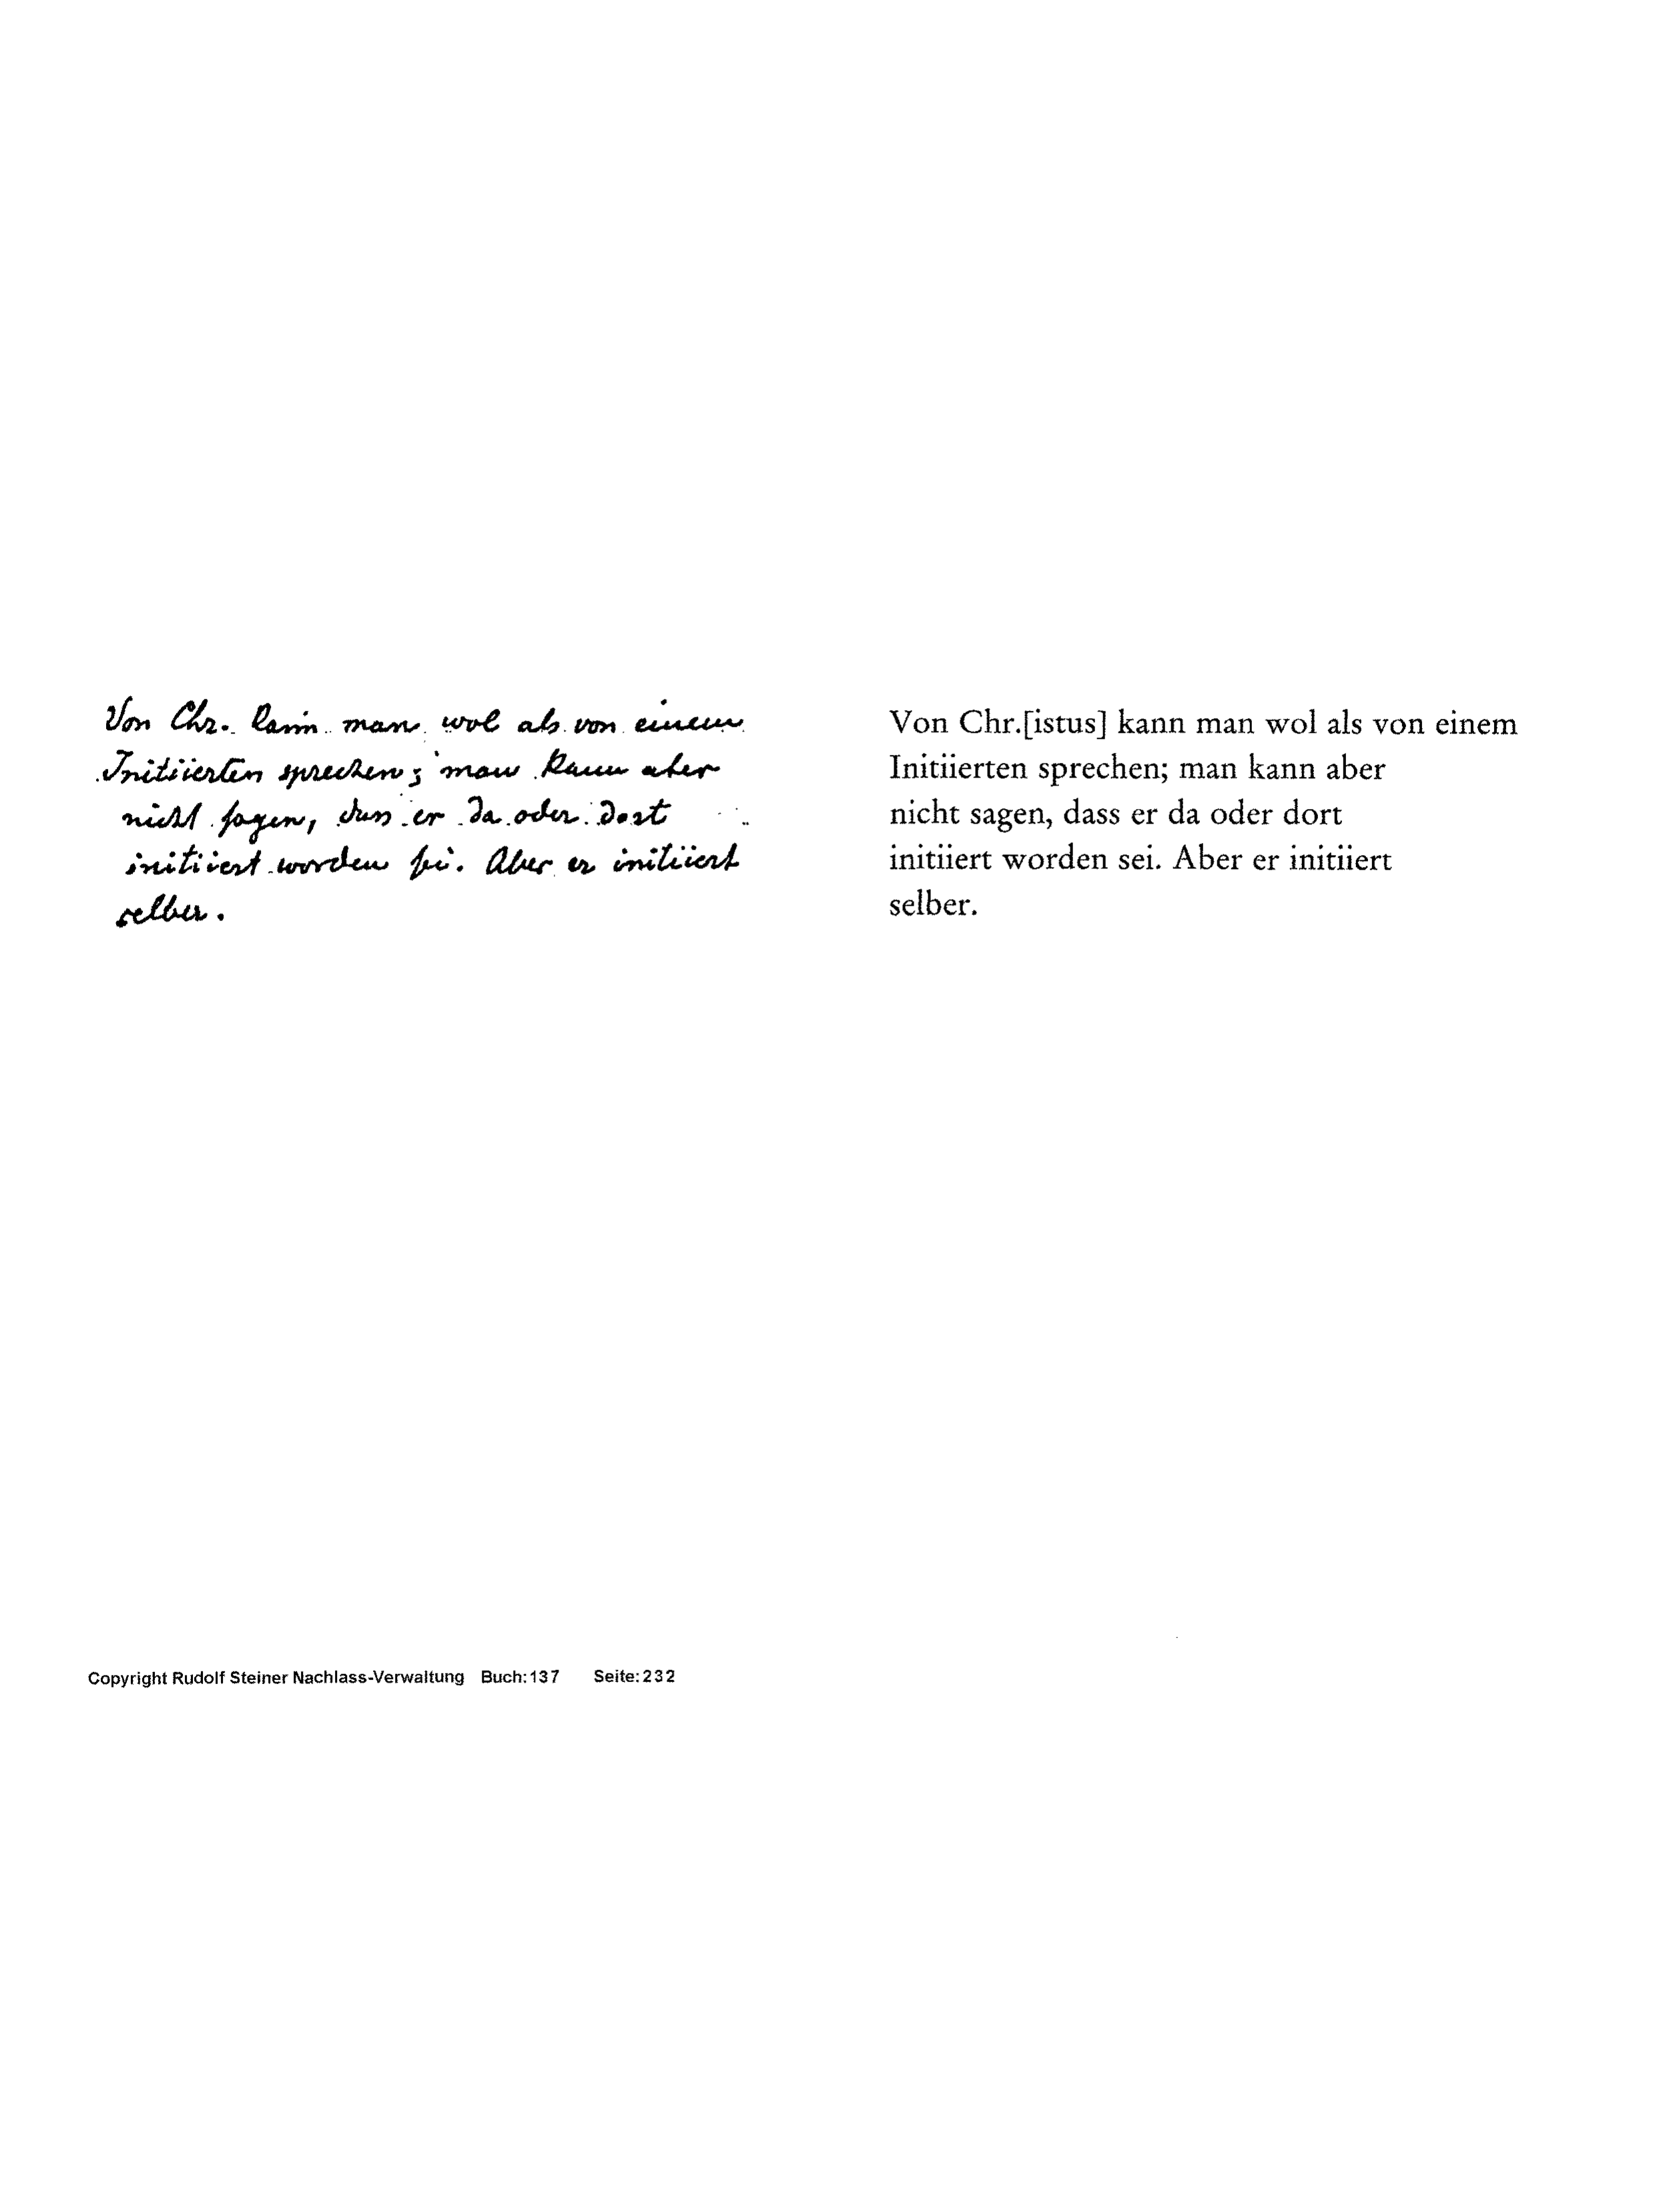 Von Chr. kann man wol als von einem
Initiierten sprechen; man kann aber
nicht sagen, dass er da oder dort
initiiert worden sei. Aber er initiiert
selber.
Von Chr.[istus] kann man wol als von einem
Initiierten sprechen; man kann aber
nicht sagen, dass er da oder dort
initiiert worden sei. Aber er initiiert
selber.
Copyright Rudolf Steiner Nachlass-Verwaltung Buch:137 Seite:232